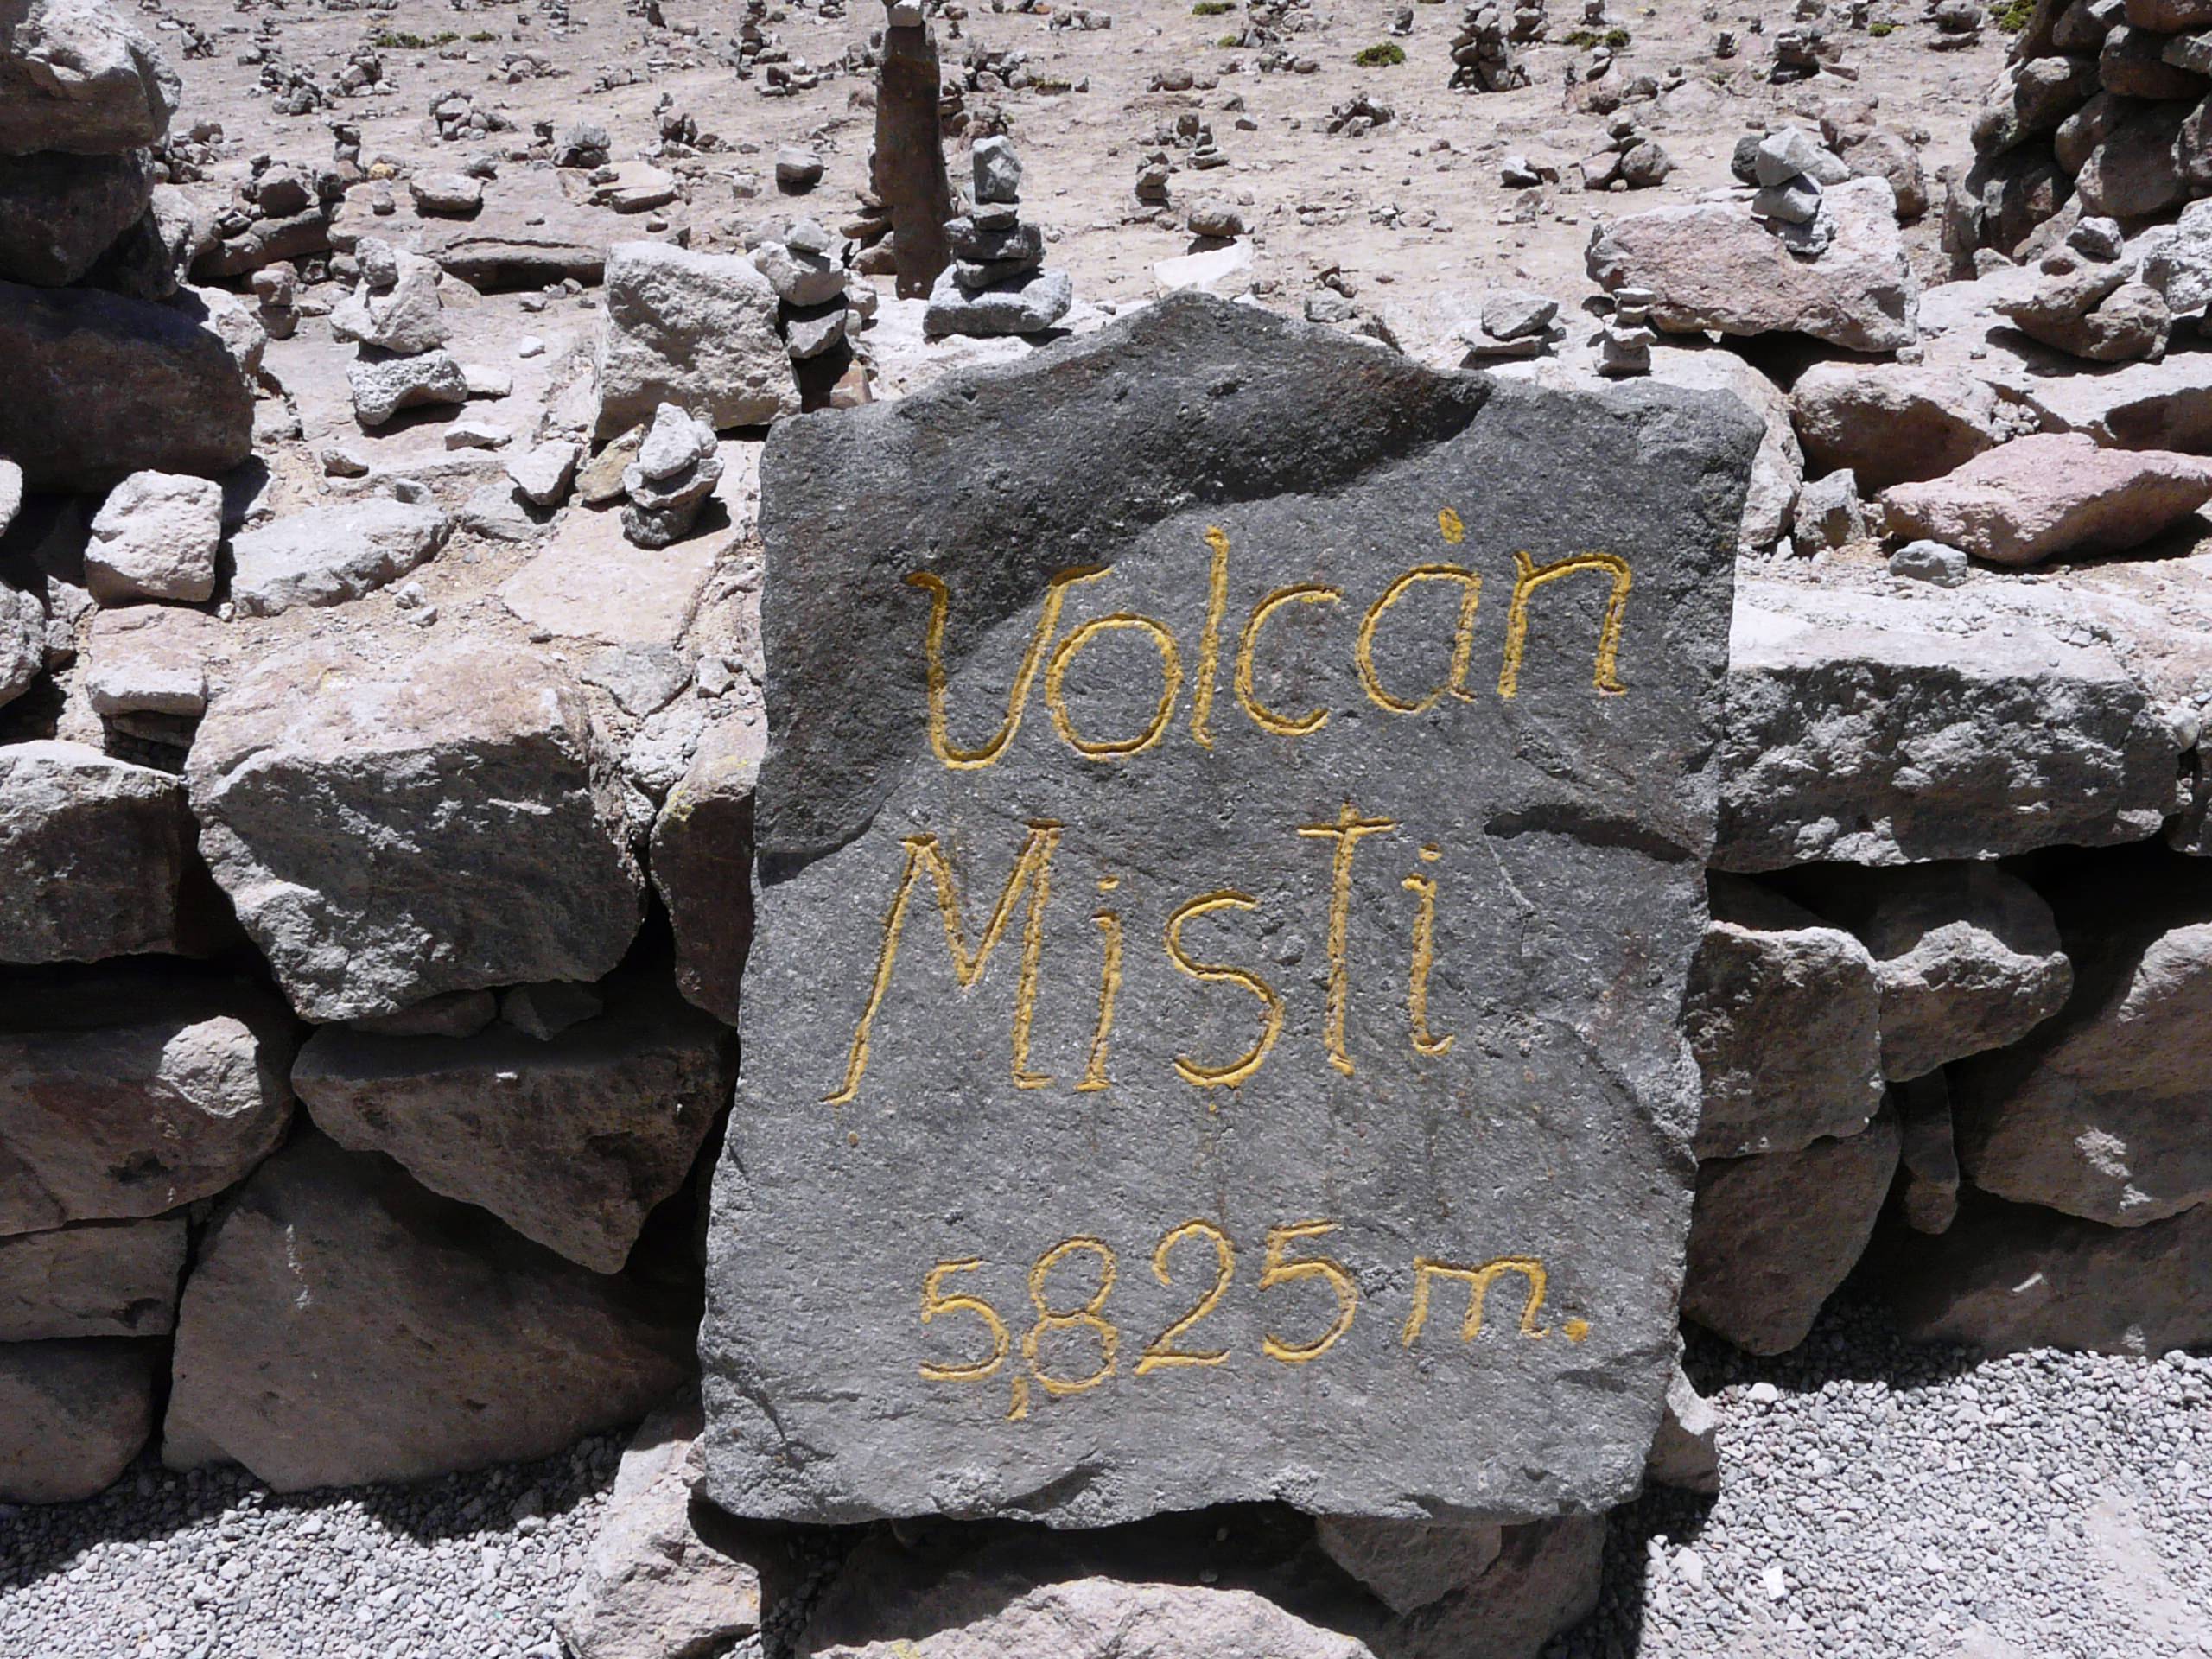 Volcán
Misti
5,825 m.